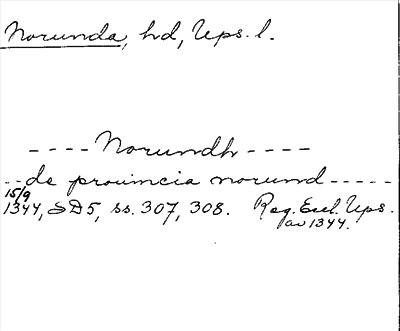 Norunda, hd, Ups. l.
---- Norundh ----
-- de prouincia norund -----
15/9
1344, SD5, ss. 307, 308. Reg. Eccl. Ups.
av 1344.